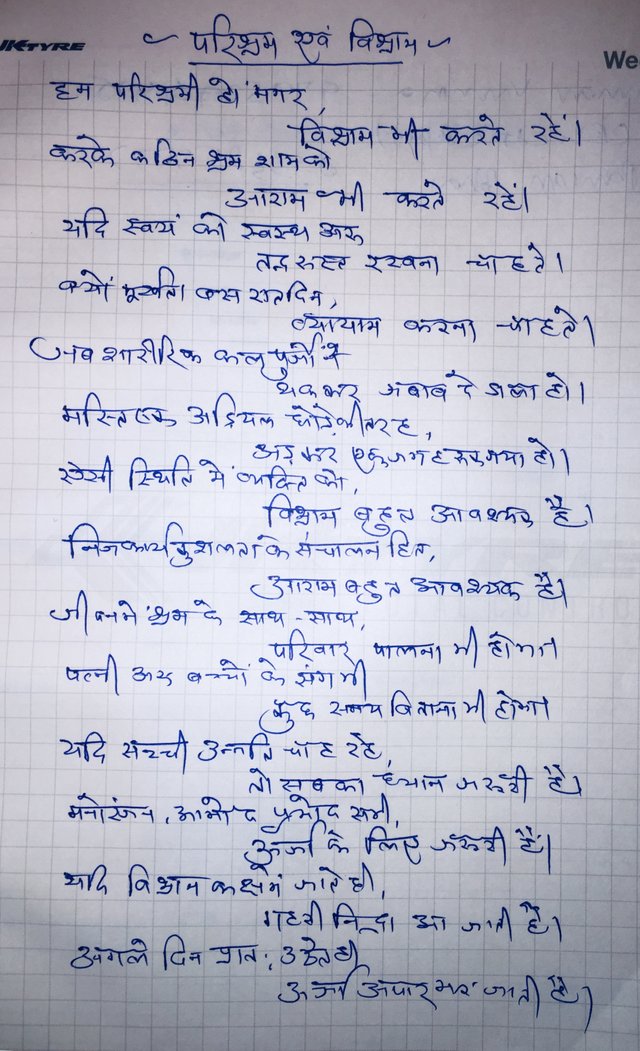 JK TYRE
We
परिश्रम एवं विश्राम
हम परिश्रमी हों मगर,
विश्राम भी करते रहें।
करके कठिन श्रम शाम को
आराम भी करते रहें।
यदि स्वयं को स्वस्थ अरु
तन्दरुस्त रखना चाहते।
क्यों मूर्खता बस रातदिन,
व्यायाम करना चाहते।
जब शारीरिक कलपुर्जों ने
थककर जबाब दे डाला हो।
मस्तिष्क अड़ियल घोड़े की तरह,
अड़कर एक जगह रुक गया हो।
ऐसी स्थिति में व्यक्ति को,
विश्राम बहुत आवश्यक है।
निज कार्यकुशलता के संचालन हित,
आराम बहुत आवश्यक है।
जीवन में श्रम के साथ-साथ,
परिवार पालना भी होगा।
पत्नी अरु बच्चों के संग भी
कुछ समय बिताना भी होगा।
यदि सच्ची उन्नति चाह रहे,
तो सबका ध्यान जरूरी है।
मनोरंजन, आमोद प्रमोद सभी,
ऊर्जा के लिए जरूरी हैं।
यदि विश्राम कक्ष में जाते ही,
गहरी निन्द्रा आ जाती है।
अगले दिन प्रात: उठते ही
ऊर्जा अपार भर जाती है।